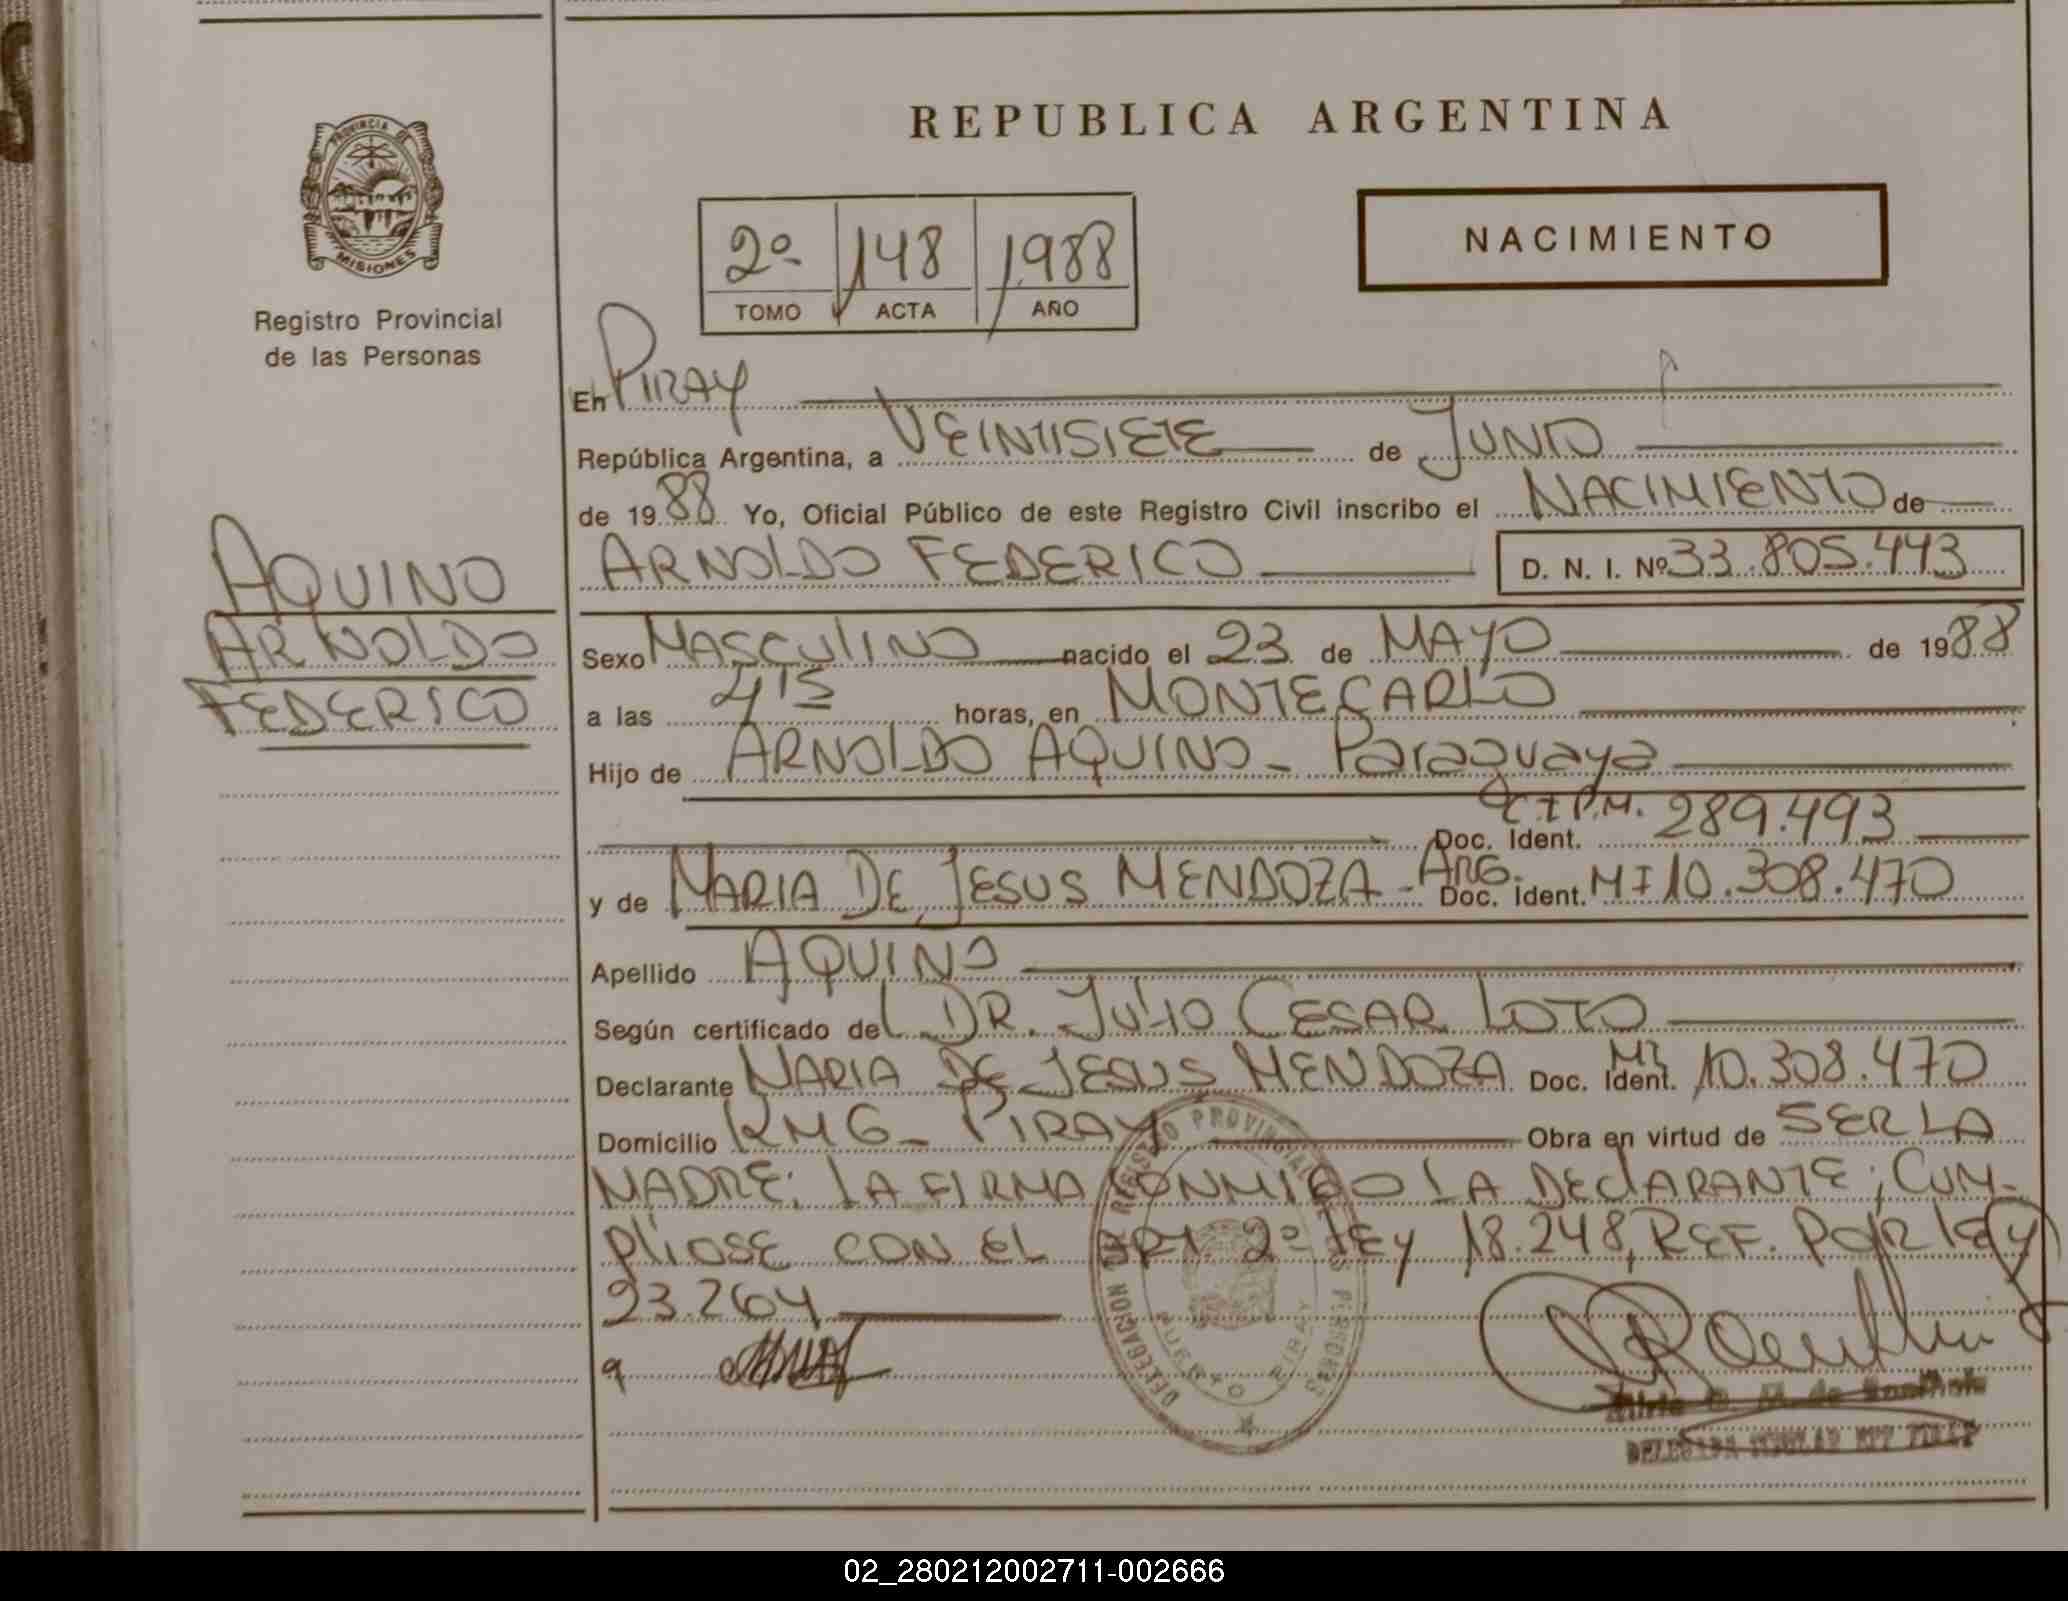 REPUBLICA ARGENTINA
PROVINCIA DE
MISIONES
Registro Provincial
de las Personas
2º 148 1988
TOMO ACTA AÑO
NACIMIENTO
En PIRAY
República Argentina, a VEINTISIETE de JUNIO
de 1988 Yo, Oficial Público de este Registro Civil inscribo el NACIMIENTO de
ARNOLDO FEDERICO D. N. I. Nº 33.805.443
AQUINO
ARNOLDO
FEDERICO
Sexo MASCULINO nacido el 23 de MAYO de 1988
a las 4 15 horas, en MONTECARLO
Hijo de ARNOLDO AQUINO - Paraguaya
Doc. Ident. C.I P.M. 289.493
y de MARIA DE JESUS MENDOZA - ARG. Doc. Ident. MI 10.308.470
Apellido AQUINO
Según certificado del DR. JULIO CESAR LOTO
Declarante MARIA DE JESUS MENDOZA Doc. Ident. MI 10.308.470
Domicilio KM6 - PIRAY Obra en virtud de SER LA
MADRE; LA FIRMA CONMIGO LA DECLARANTE; CUM-
PLIOSE CON EL ART 2º LEY 18.248, REF. POR LEY
23.264
DELEGACION DEL REGISTRO PROVINCIAL DE LAS PERSONAS
PUERTO PIRAY
02_280212002711-002666